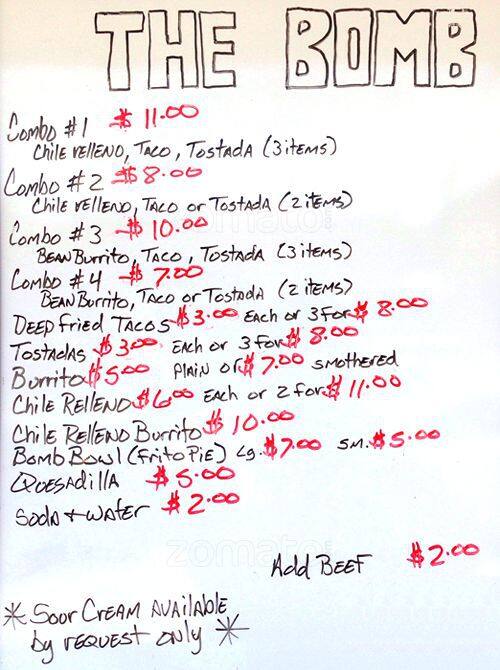 THE BOMB
Combo #1 $11.00
Chile relleno, Taco, Tostada (3 items)
Combo #2 $8.00
Chile relleno, Taco or Tostada (2 items)
Combo #3 $10.00
Bean Burrito, Taco, Tostada (3 items)
Combo #4 $7.00
Bean Burrito, Taco or Tostada (2 items)
Deep fried Tacos $3.00 Each or 3 for $8.00
Tostadas $3.00 Each or 3 for $8.00
Burrito $5.00 Plain or $7.00 smothered
Chile Relleno $6.00 Each or 2 for $11.00
Chile Relleno Burrito $10.00
Bomb Bowl (Frito Pie) Lg. $7.00 Sm. $5.00
Quesadilla $5.00
Soda + Water $2.00
zomato
Add Beef $2.00
* Sour Cream Available
by request only *